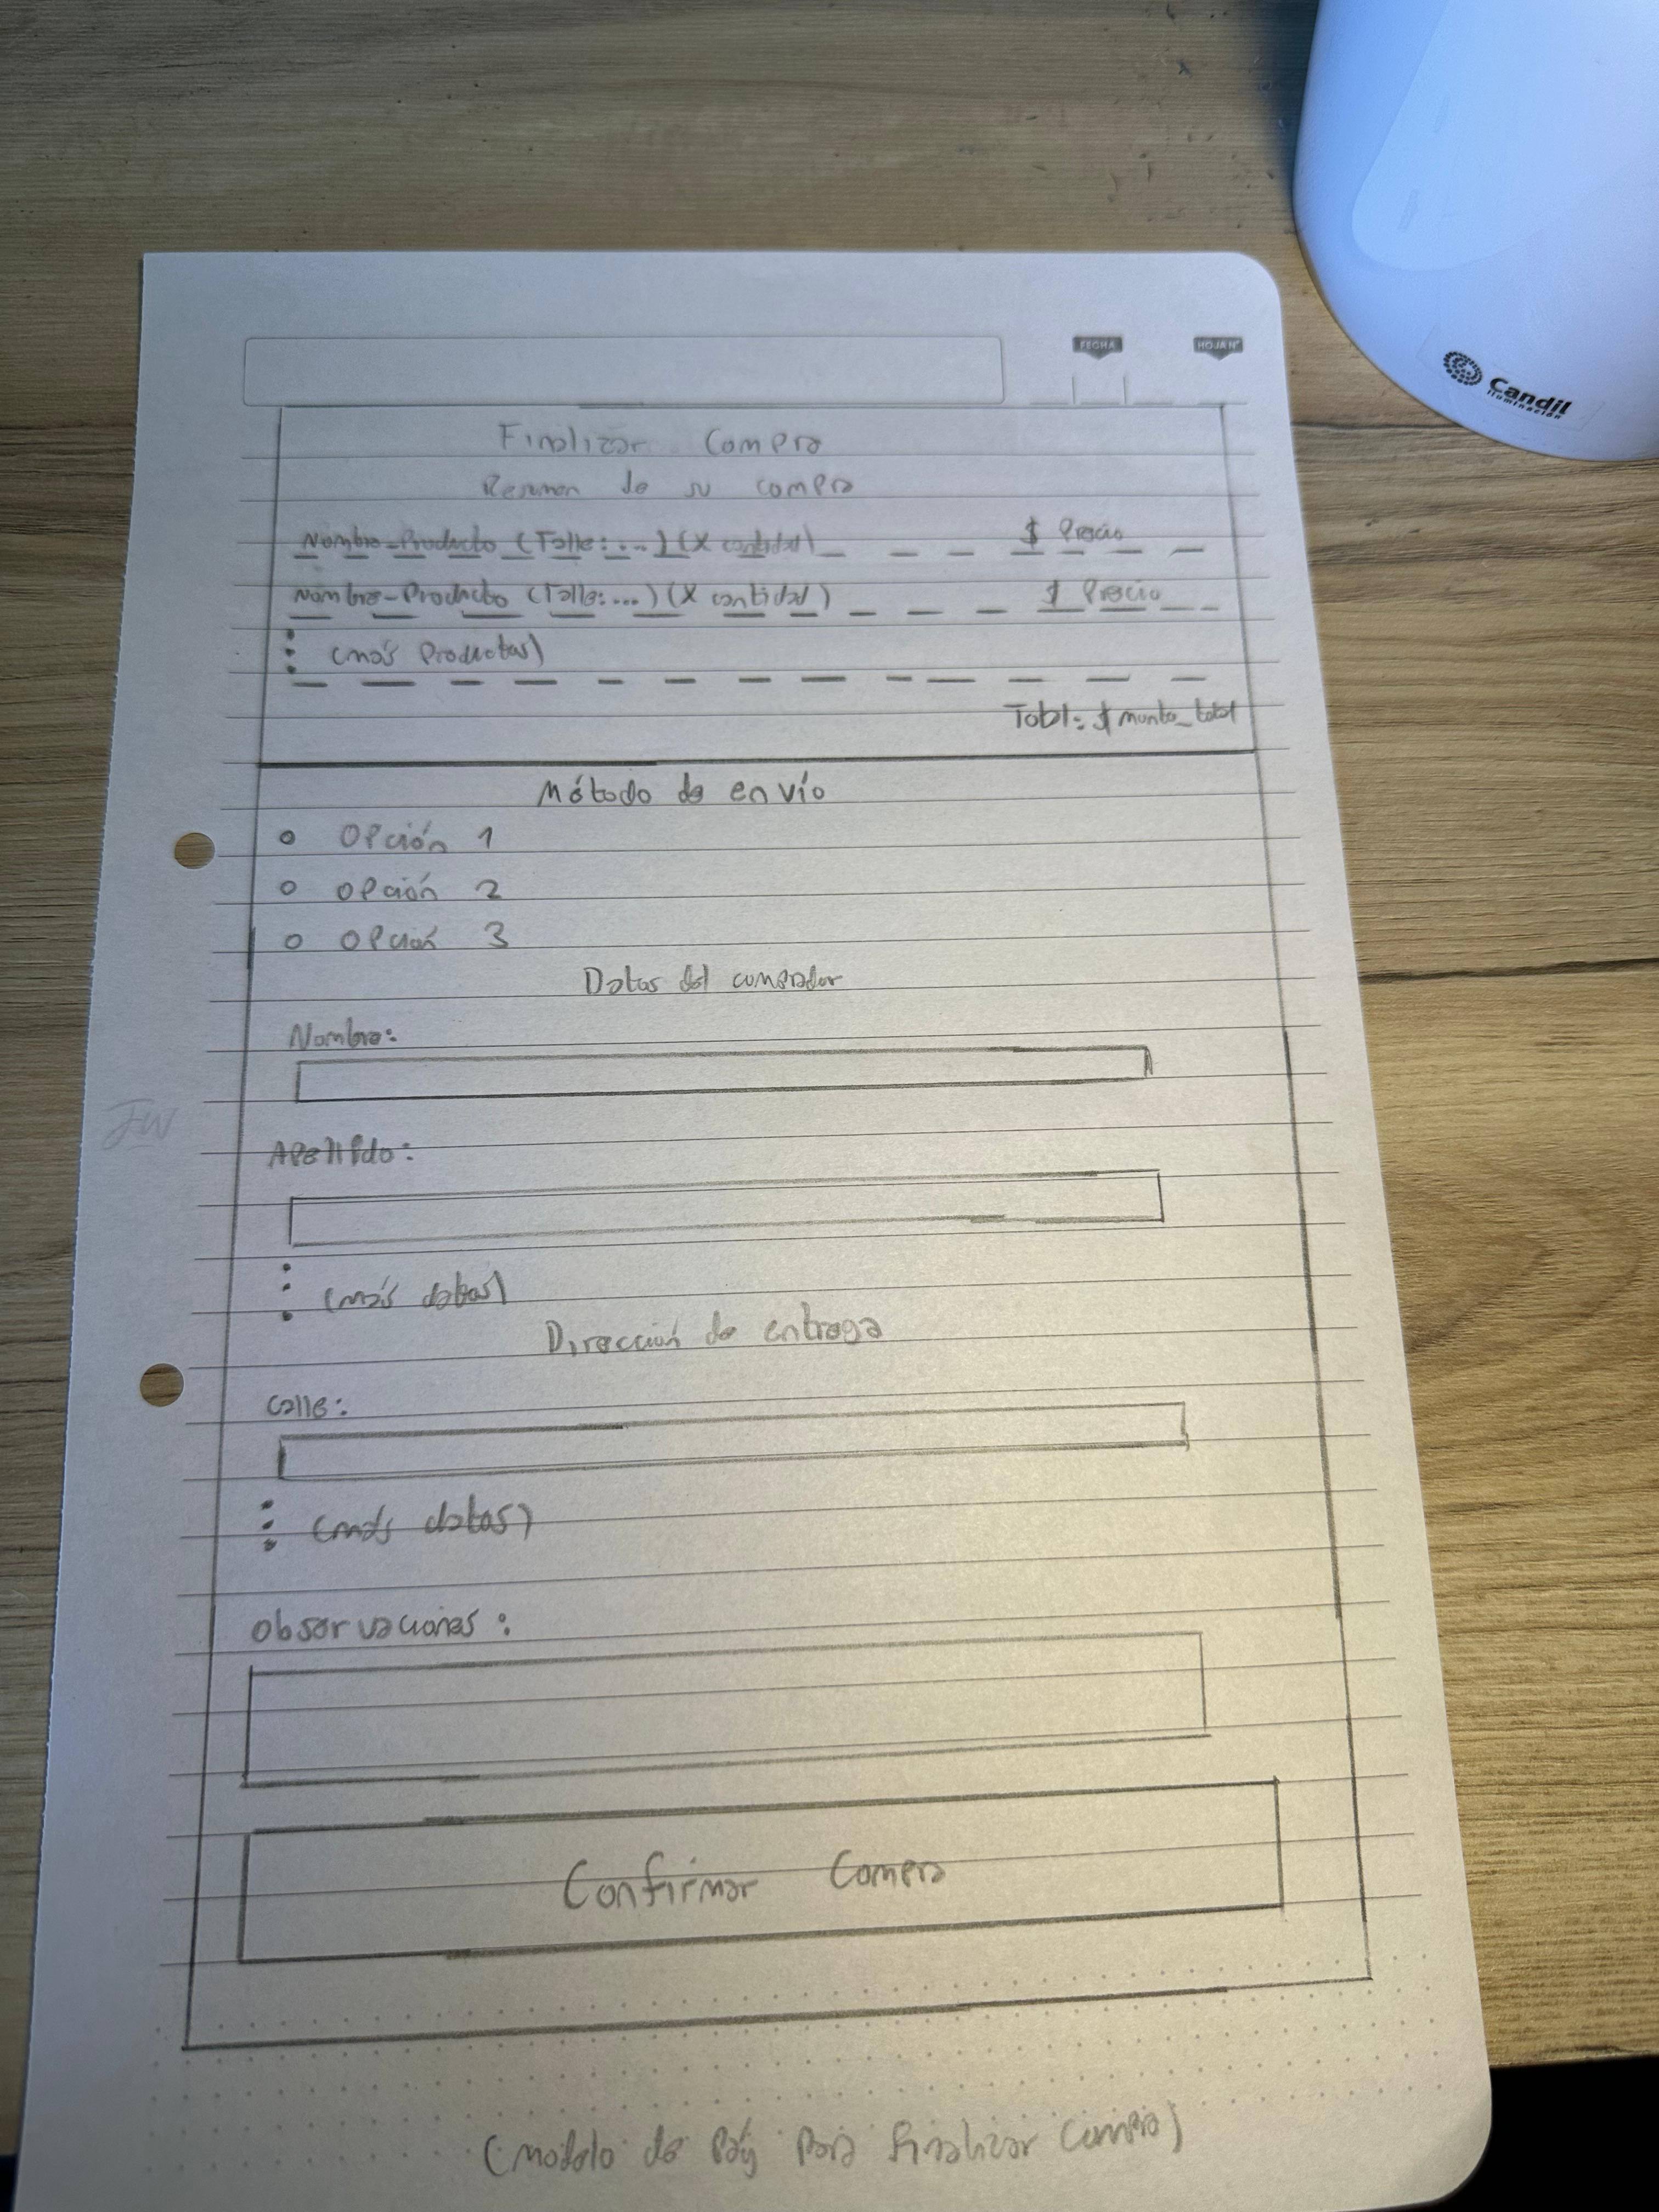 FECHA
HOJA Nº
Candil
iluminación
Finalizar Compra
Resumen de su compra
Nombre-Producto (Talle:...) (X cantidad) $ Precio
Nombre-Producto (Talle:...) (X cantidad) $ Precio
(más Productos)
Total: $ monto_total
Método de envío
Opción 1
Opción 2
Opción 3
Datos del comprador
Nombre:
Apellido:
(más datos)
Dirección de entrega
Calle:
(más datos)
Observaciones:
Confirmar Compra
(Modelo de Pág para finalizar compra)